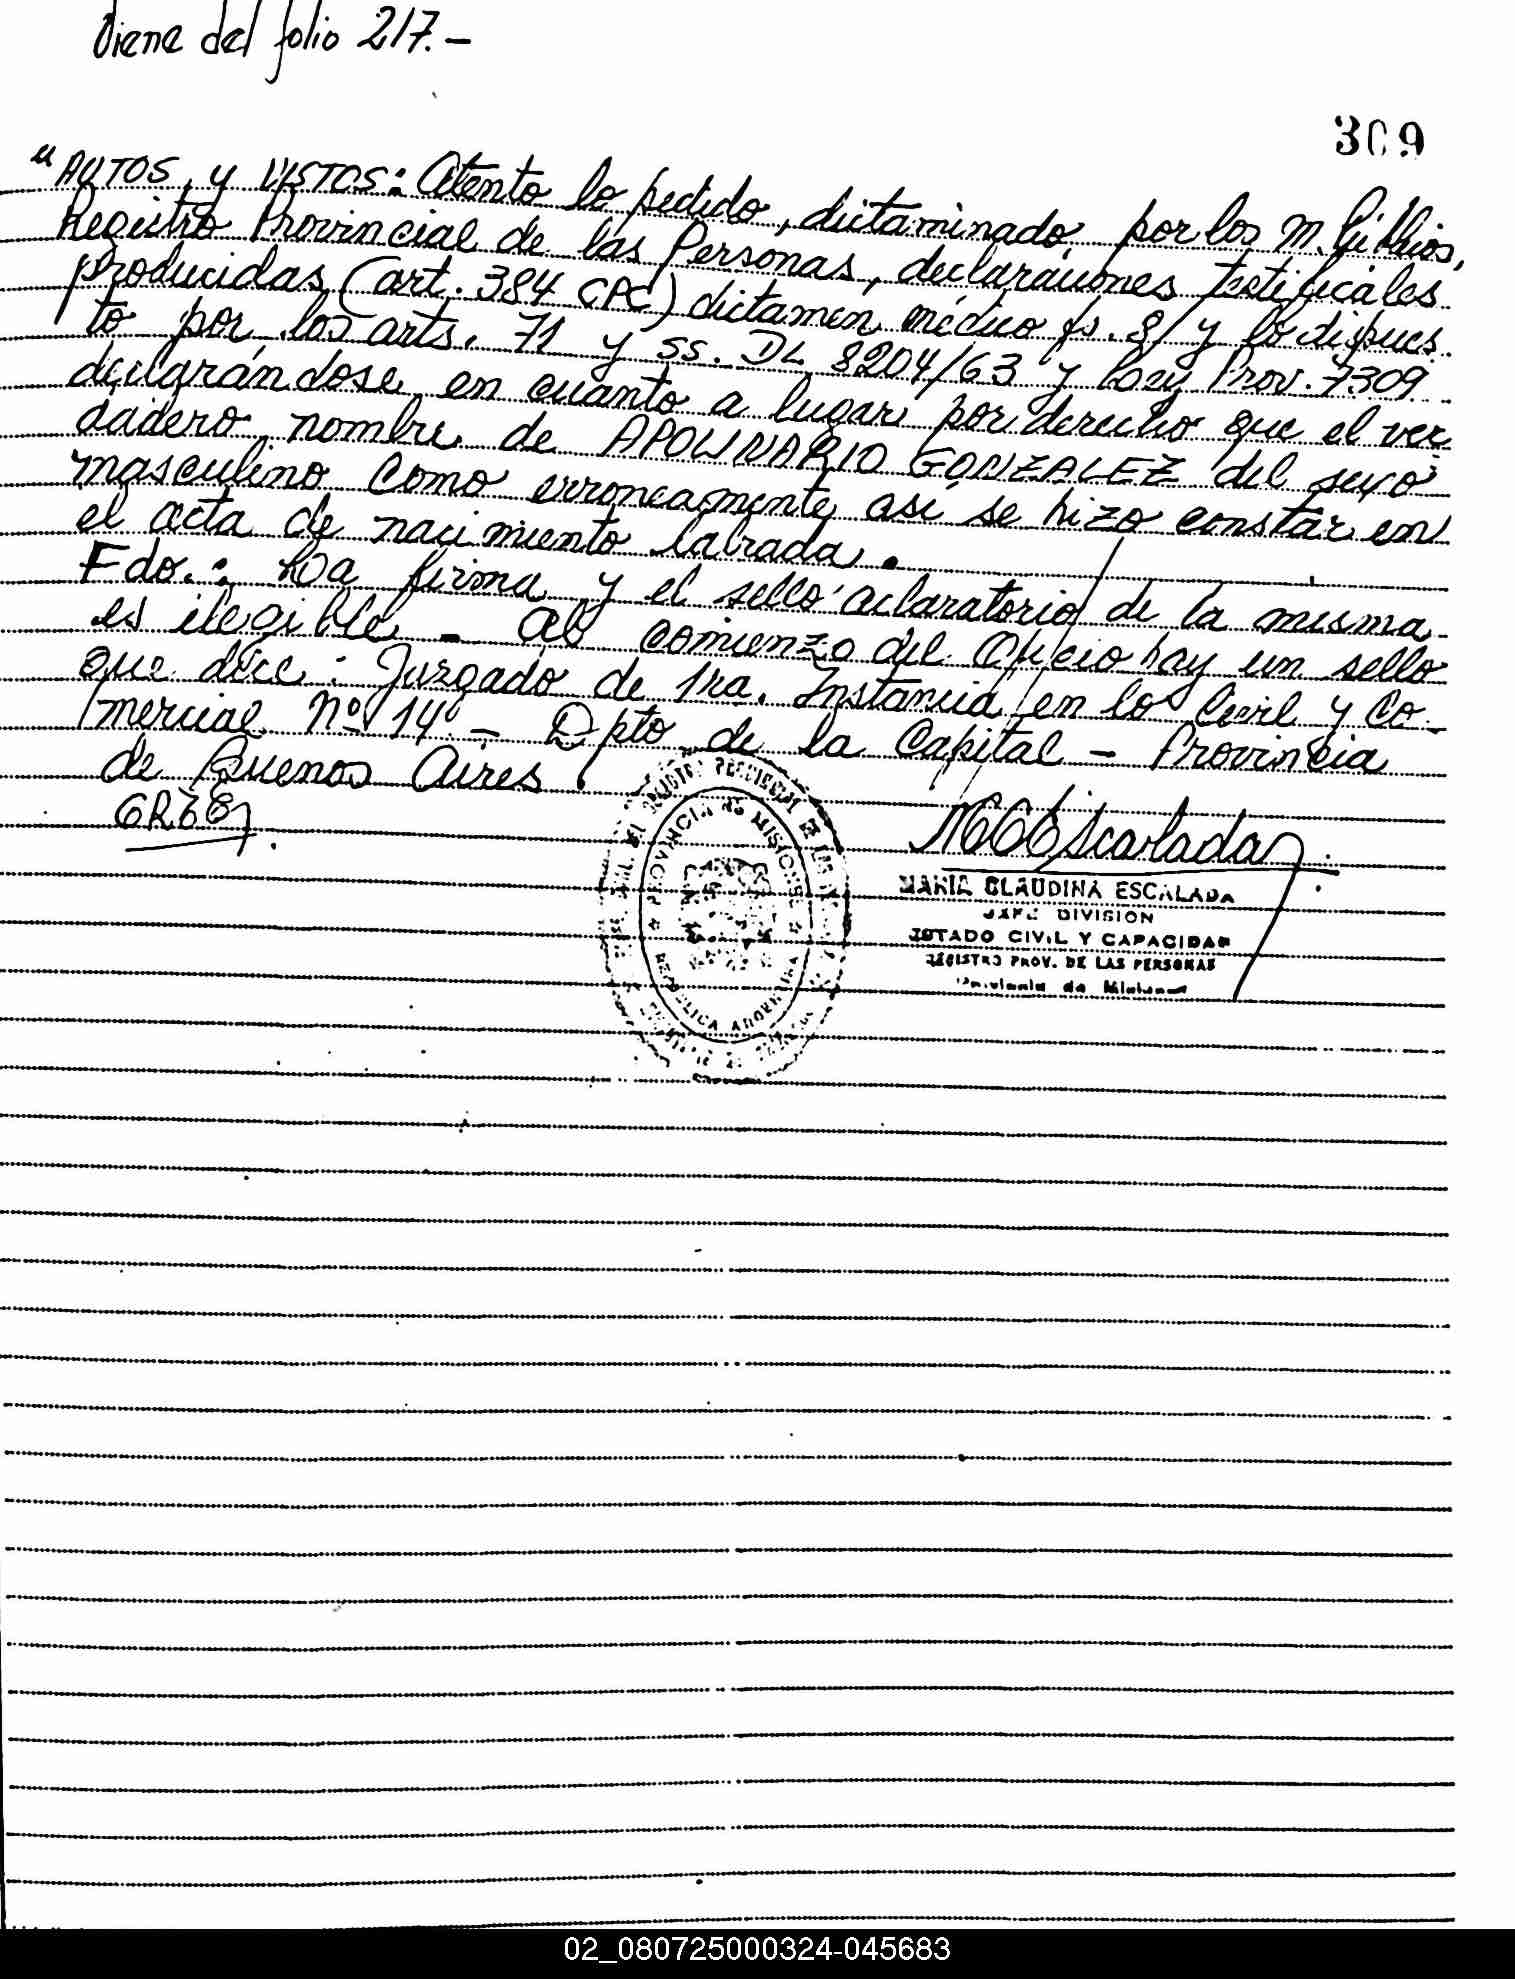 Viene del folio 217.-
309
"AUTOS y VISTOS: Atento lo pedido, dictaminado por los M.
Registro Provincial de las Personas, declaraciones testificales
producidas (art. 384 CPC) dictamen médico fs. 8/ y lo dispues
to por los arts. 71 y ss. DL 8204/63 y Ley Prov. 7309
declarándose en cuanto a lugar por derecho que el ver
dadero nombre de APOLINARIO GONZALEZ del sexo
masculino como erroneamente así se hizo constar en
el acta de nacimiento labrada.
Fdo.: La firma y el sello aclaratorio de la misma
es ilegible - Al comienzo del Oficio hay un sello
que dice: Juzgado de 1ra. Instancia en lo Civil y Co
mercial Nº 14 - Dpto de la Capital - Provincia
de Buenos Aires.
MARIA CLAUDINA ESCALADA
JEFE DIVISION
ESTADO CIVIL Y CAPACIDAD
REGISTRO PROV. DE LAS PERSONAS
Provincia de Misiones
PROVINCIA DE MISIONES
REPUBLICA ARGENTINA
02_080725000324-045683